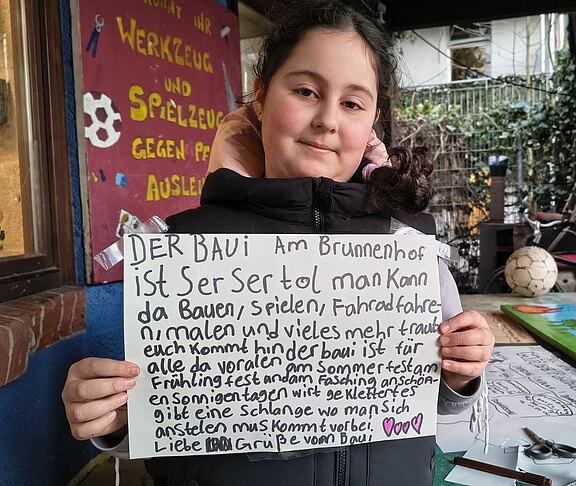 KÖNNT IHR
WERKZEUG
UND
SPIELZEUG
GEGEN PF
AUSLEI
DER BAUi Am Brunnenhof
ist Ser Ser tol man Kann
da Bauen, spielen, Fahradfahre-
n, malen und vieles mehr traut
euch kommt hin der baui ist für
alle da voralen am Sommerfest am
Frühlingfest andam Fasching anschön-
en Sonnigentagen wirt ge Kletterfes
gibt eine Schlange wo man Sich
anstelen mus Kommt vorbei.
Liebe Grüße vom Baui